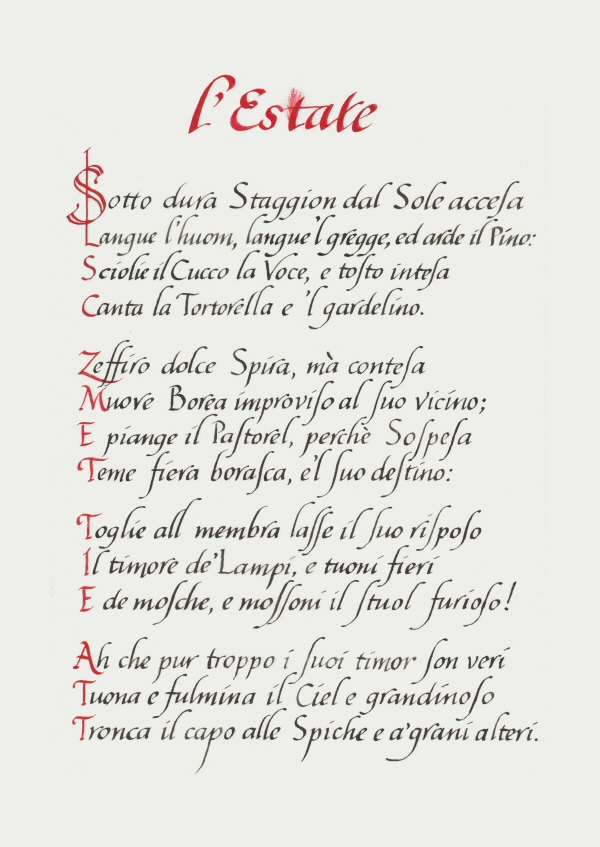 l'Estate
Sotto dura Staggion dal Sole accesa
Langue l'huom, langue 'l gregge, ed arde il Pino:
Sciolie il Cucco la Voce, e tosto intesa
Canta la Tortorella e 'l gardelino.
Zeffiro dolce Spira, mà contesa
Muove Borea improviso al suo vicino;
E piange il Pastorel, perchè Sospesa
Teme fiera borasca, e'l suo destino:
Toglie all membra lasse il suo risposo
Il timore de' Lampi, e tuoni fieri
E de mosche, e mossoni il stuol furioso!
Ah che pur troppo i suoi timor son veri
Tuona e fulmina il Ciel e grandinoso
Tronca il capo alle Spiche e a' grani alteri.